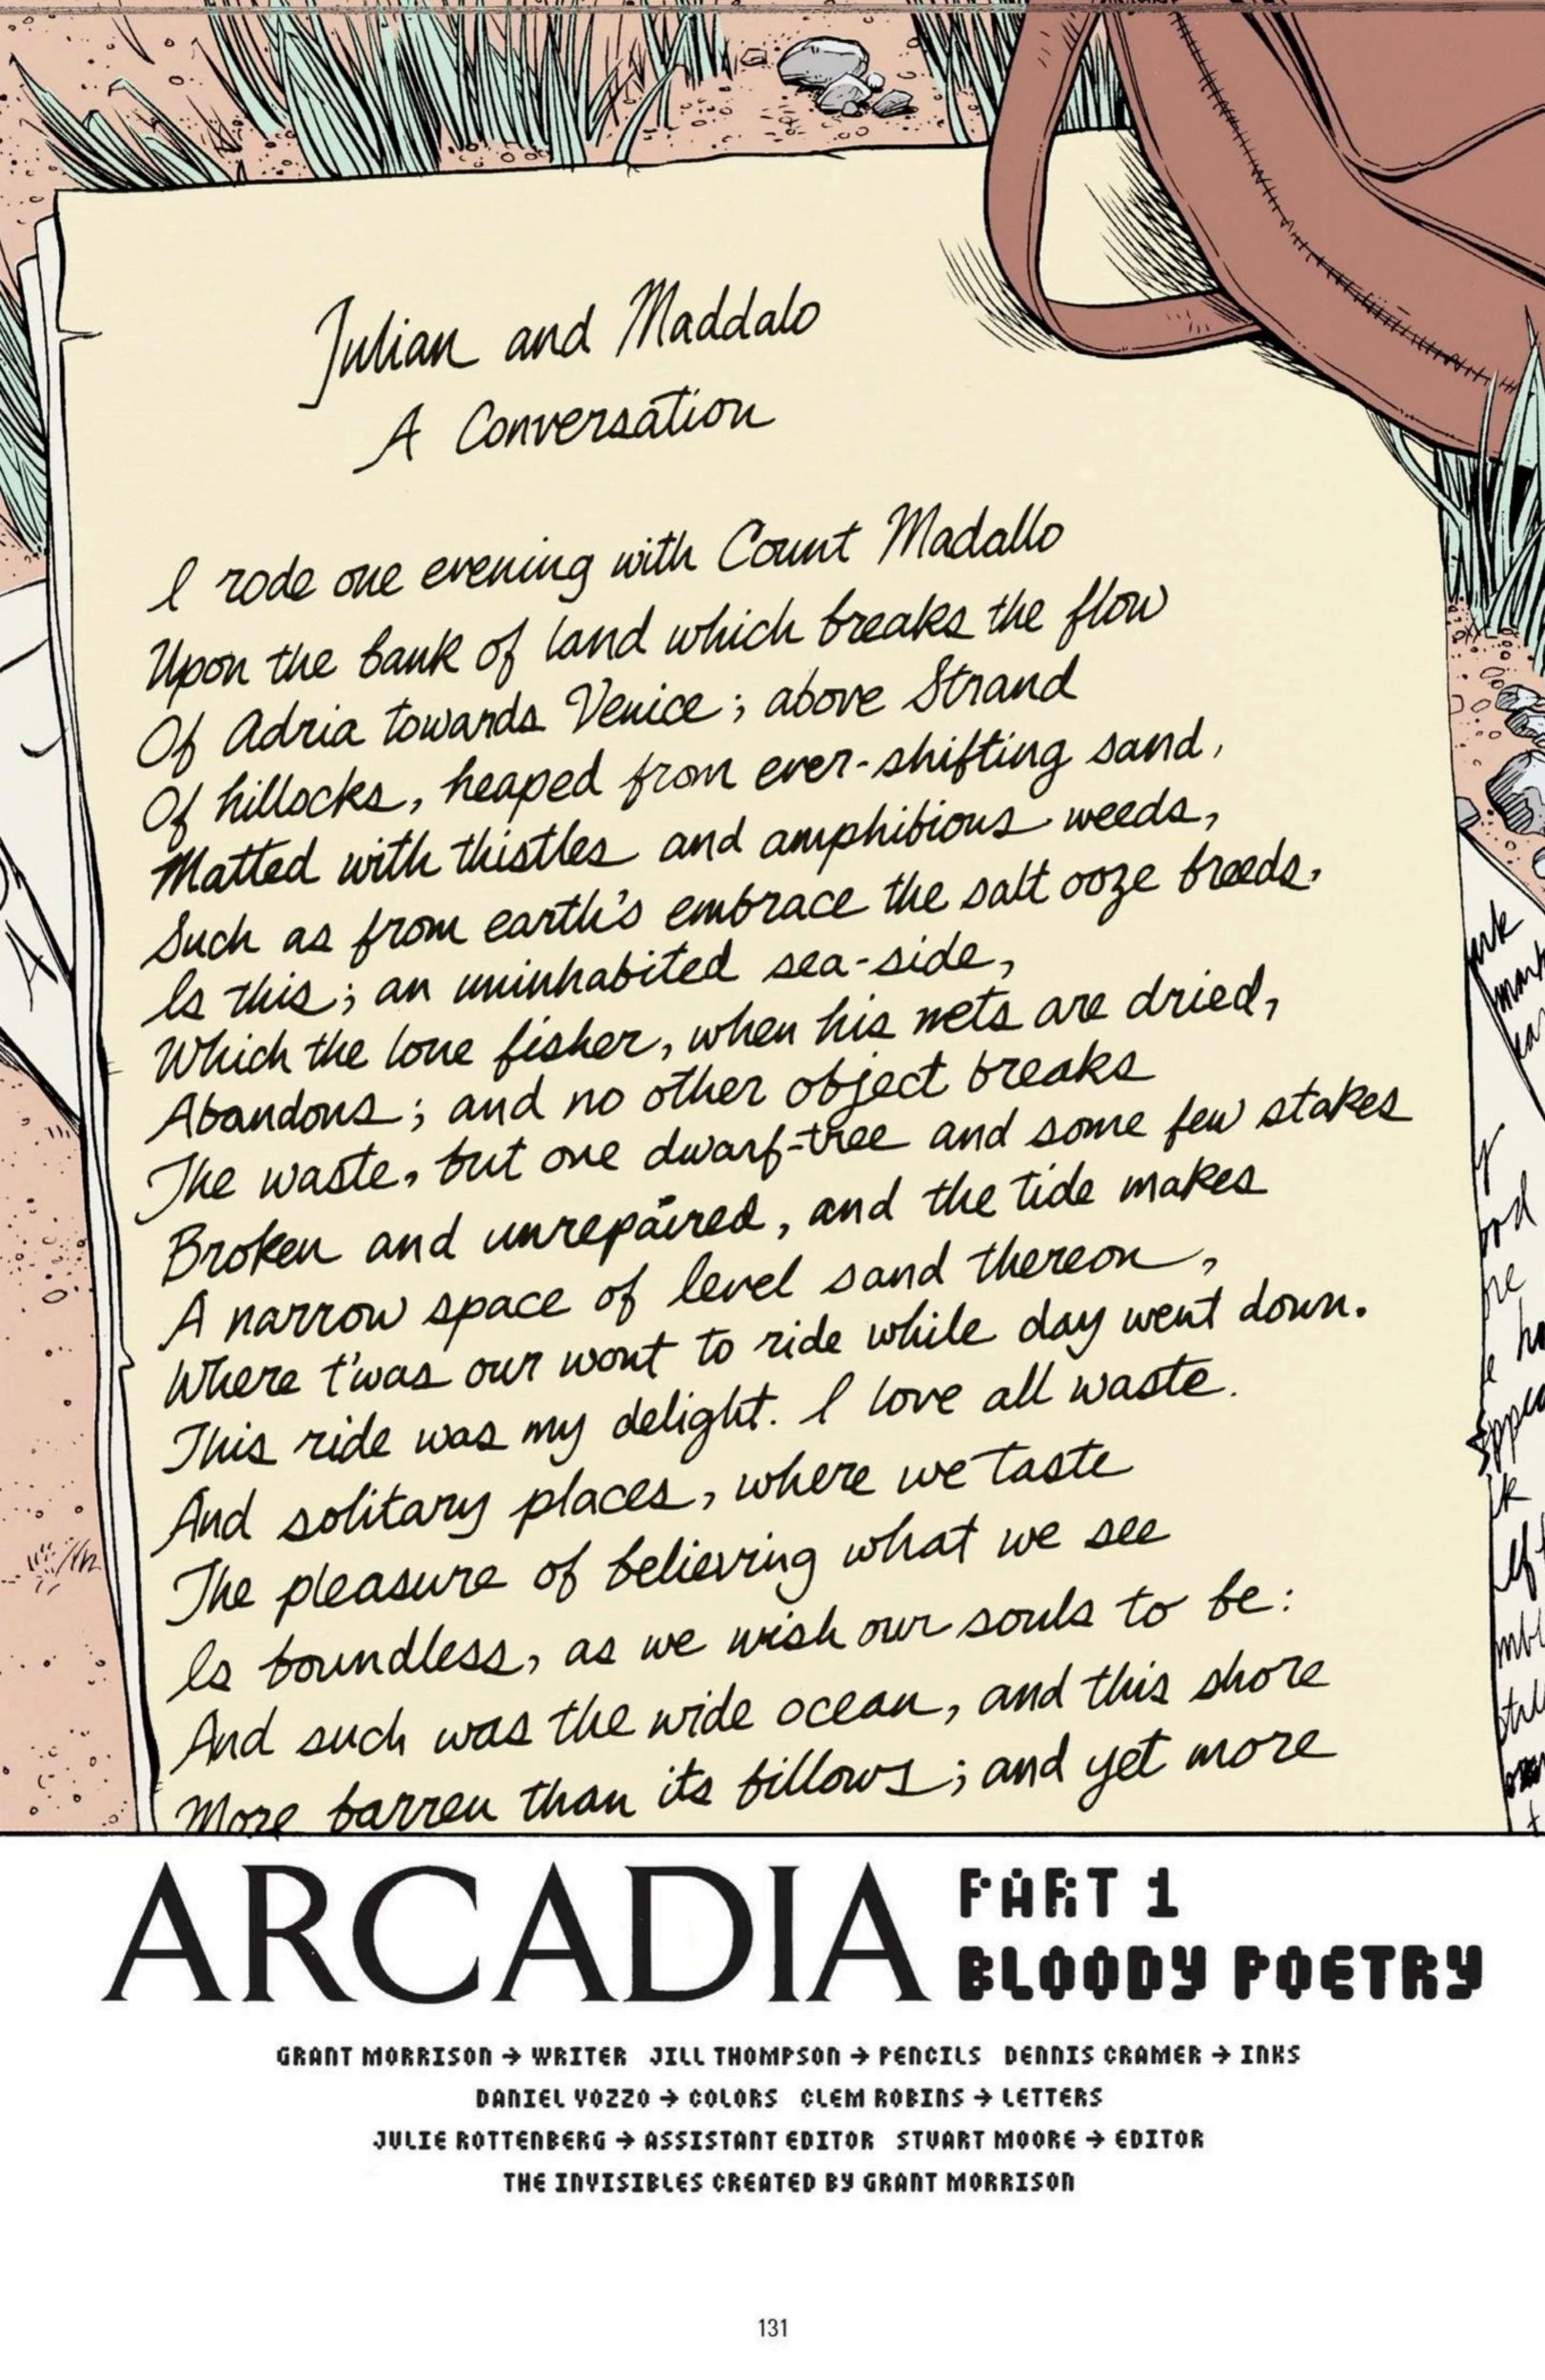 Julian and Maddalo
A Conversation
I rode one evening with Count Madallo
Upon the bank of land which breaks the flow
Of Adria towards Venice; above Strand
Of hillocks, heaped from ever-shifting sand,
Matted with thistles and amphibious weeds,
Such as from earth's embrace the salt ooze breeds,
Is this; an uninhabited sea-side,
Which the lone fisher, when his nets are dried,
Abandons; and no other object breaks
The waste, but one dwarf-tree and some few stakes
Broken and unrepaired, and the tide makes
A narrow space of level sand thereon,
Where t'was our wont to ride while day went down.
This ride was my delight. I love all waste.
And solitary places, where we taste
The pleasure of believing what we see
Is boundless, as we wish our souls to be:
And such was the wide ocean, and this shore
More barren than its billows; and yet more
ARCADIA PART 1
BLOODY POETRY
GRANT MORRISON → WRITER JILL THOMPSON → PENCILS DENNIS CRAMER → INKS
DANIEL VOZZO → COLORS CLEM ROBINS → LETTERS
JULIE ROTTENBERG → ASSISTANT EDITOR STUART MOORE → EDITOR
THE INVISIBLES CREATED BY GRANT MORRISON
131